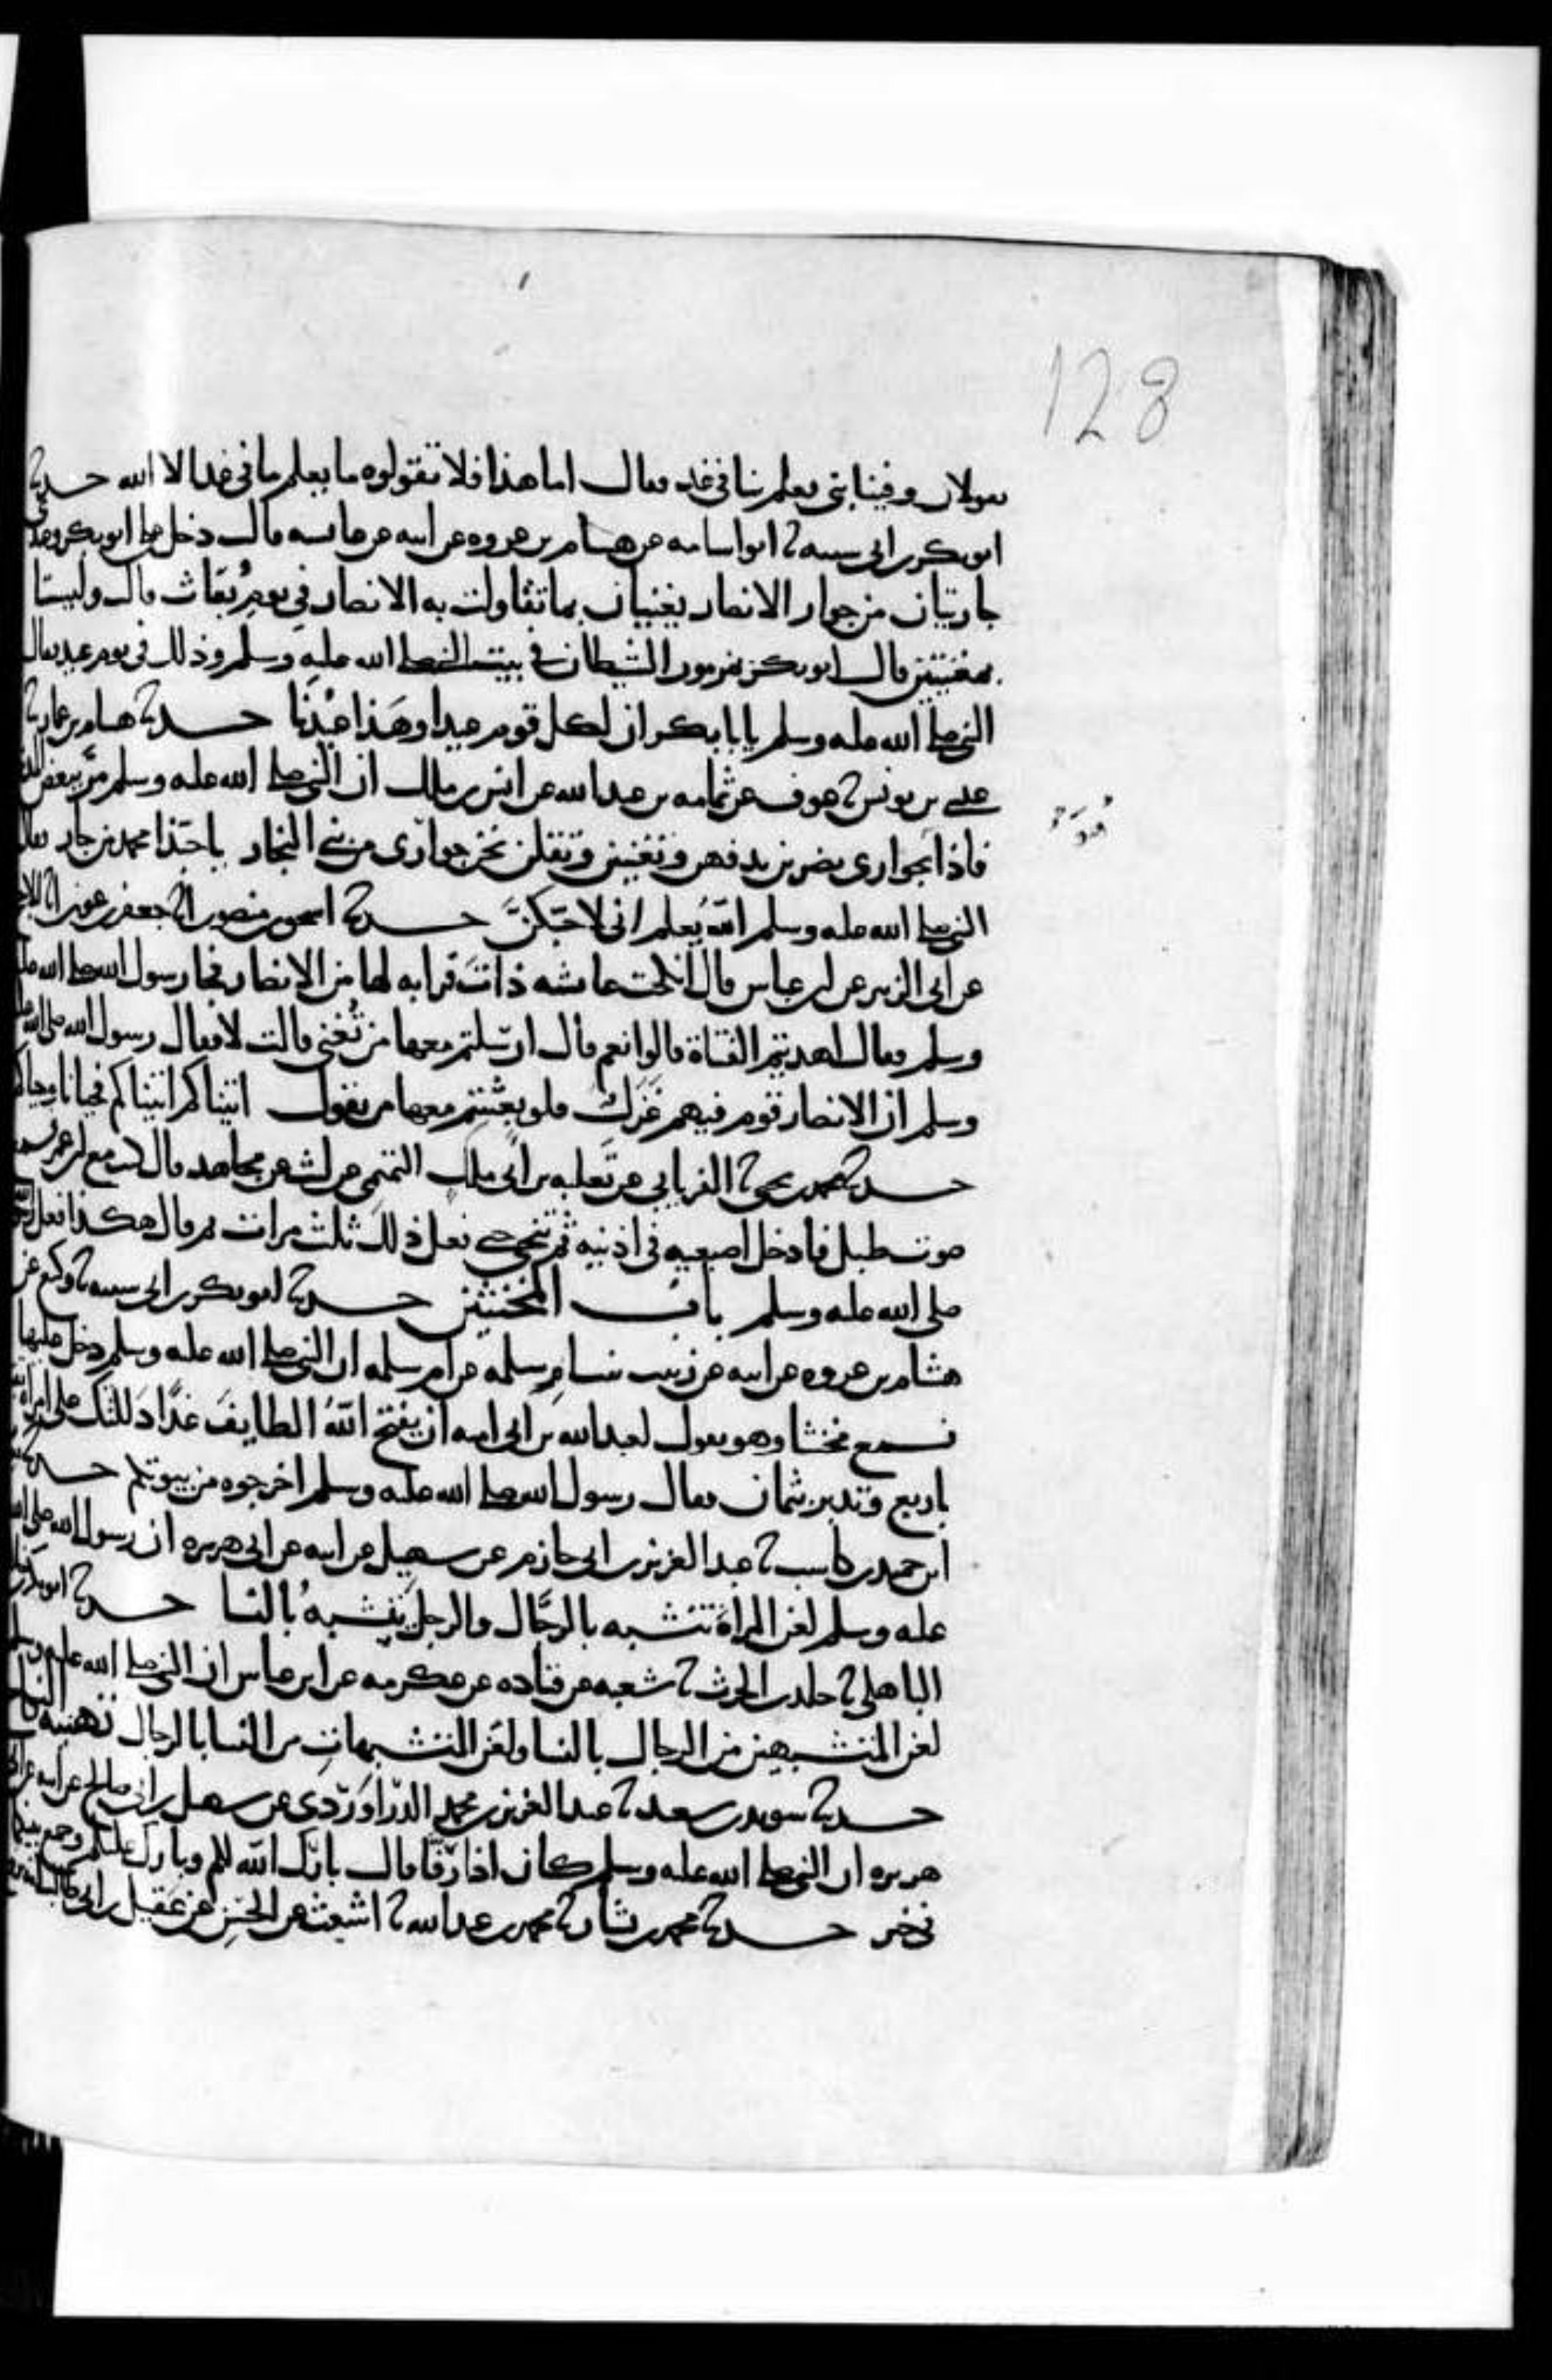 128
يقولان وفينا نبي يعلم ما في غد فقال اما هذا فلا تقولوه ما يعلم ما في غد الا الله حدثنا
ابو بكر بن ابي شيبه ثنا ابو اسامه عن هشام بن عروه عن ابيه عن عائشه قالت دخل علي ابو بكر وعندي
جاريتان من جوار الانصار يغنيان بما تقاولت به الانصار في يوم بُعَاث قال وليستا
بمغنيتين فقال ابو بكر بمزمور الشيطان في بيت النبي صلى الله عليه وسلم وذلك في يوم عيد فقال
النبي صلى الله عليه وسلم يا با بكر ان لكل قوم عيدا وهَذا عيْدنا حدثنا هشام بن عمار ثنا
عيسى بن يونس ثنا عوف عن ثمامه بن عبد الله عن انس بن ملك ان النبي صلى الله عليه وسلم مرَّ ببعض
فاذا بجواري يضربن بدفهن وتغنين وتقلن نحن جواري من بني النجار يا حبّذا محمد من جار فقال
النبي صلى الله عليه وسلم اللهُ يعلم اني لاحبّكنَّ حدثنا اسحق بن منصور انا جعفر بن عون انا الاجلح
عن ابي الزبير عن ابن عباس قال انكحت عائشه ذات قرابه لها من الانصار فجا رسول الله صلى الله عليه
وسلم فقال اهديتم الفتاة قالوا نعم قال ارسلتم معها من تُغني قالت لا فقال رسول الله صلى الله عليه
وسلم ان الانصار قوم فيهم غَزَلٌ فلو بعثتم معها من يقول اتيناكم اتيناكم فحيانا وحياكم
حدثنا محمد بن يحيى ثنا الفريابي عن ثعلبه بن ابي ملك التميمي عن ليث عن مجاهد قال كنت مع ابن عمر فسمع
صوت طبل فادخل اصبعيه في اذنيه ثم تنحى حتى فعل ذلك ثلث مرات ثم قال هكذا فعل رسول الله
صلى الله عليه وسلم باب المخنثين حدثنا ابو بكر بن ابي شيبه ثنا وكيع عن
هشام بن عروه عن ابيه عن زينب بنت ام سلمه عن ام سلمه ان النبي صلى الله عليه وسلم دخل عليها
فسمع مخنثا وهو يقول لعبد الله بن ابي اميه ان يفتح اللهُ الطايفَ غدًا دَللتك على امراه تقبل
باربع وتدبر بثمان فقال رسول الله صلى الله عليه وسلم اخرجوه من بيوتكم حدثنا
ابن حميد بن كاسب ثنا عبد العزيز بن ابي حازم عن سهيل عن ابيه عن ابي هريره ان رسول الله صلى الله
عليه وسلم لعن المراة تتشبه بالرجال والرجل يتشبه بالنسا حدثنا ابو بكر بن
الباهلي ثنا خلد بن الحرث ثنا شعبه عن قتاده عن عكرمه عن ابن عباس ان النبي صلى الله عليه وسلم
لعن المتشبهين من الرجال بالنسا ولعن المتشبهات من النسا بالرجال تهنيه النكاح
حدثنا سويد بن سعيد ثنا عبد العزيز بن محمد الدّراوَرْدي عن سهيل بن ابي صالح عن ابيه عن ابي
هريره ان النبي صلى الله عليه وسلم كان اذا رفّا قال بارك الله لكم وبارك عليكم وجمع بينكما
في خير حدثنا محمد بن بشار ثنا محمد بن عبد الله ثنا اشعث عن الحسن عن عَقيل بن ابي طالب